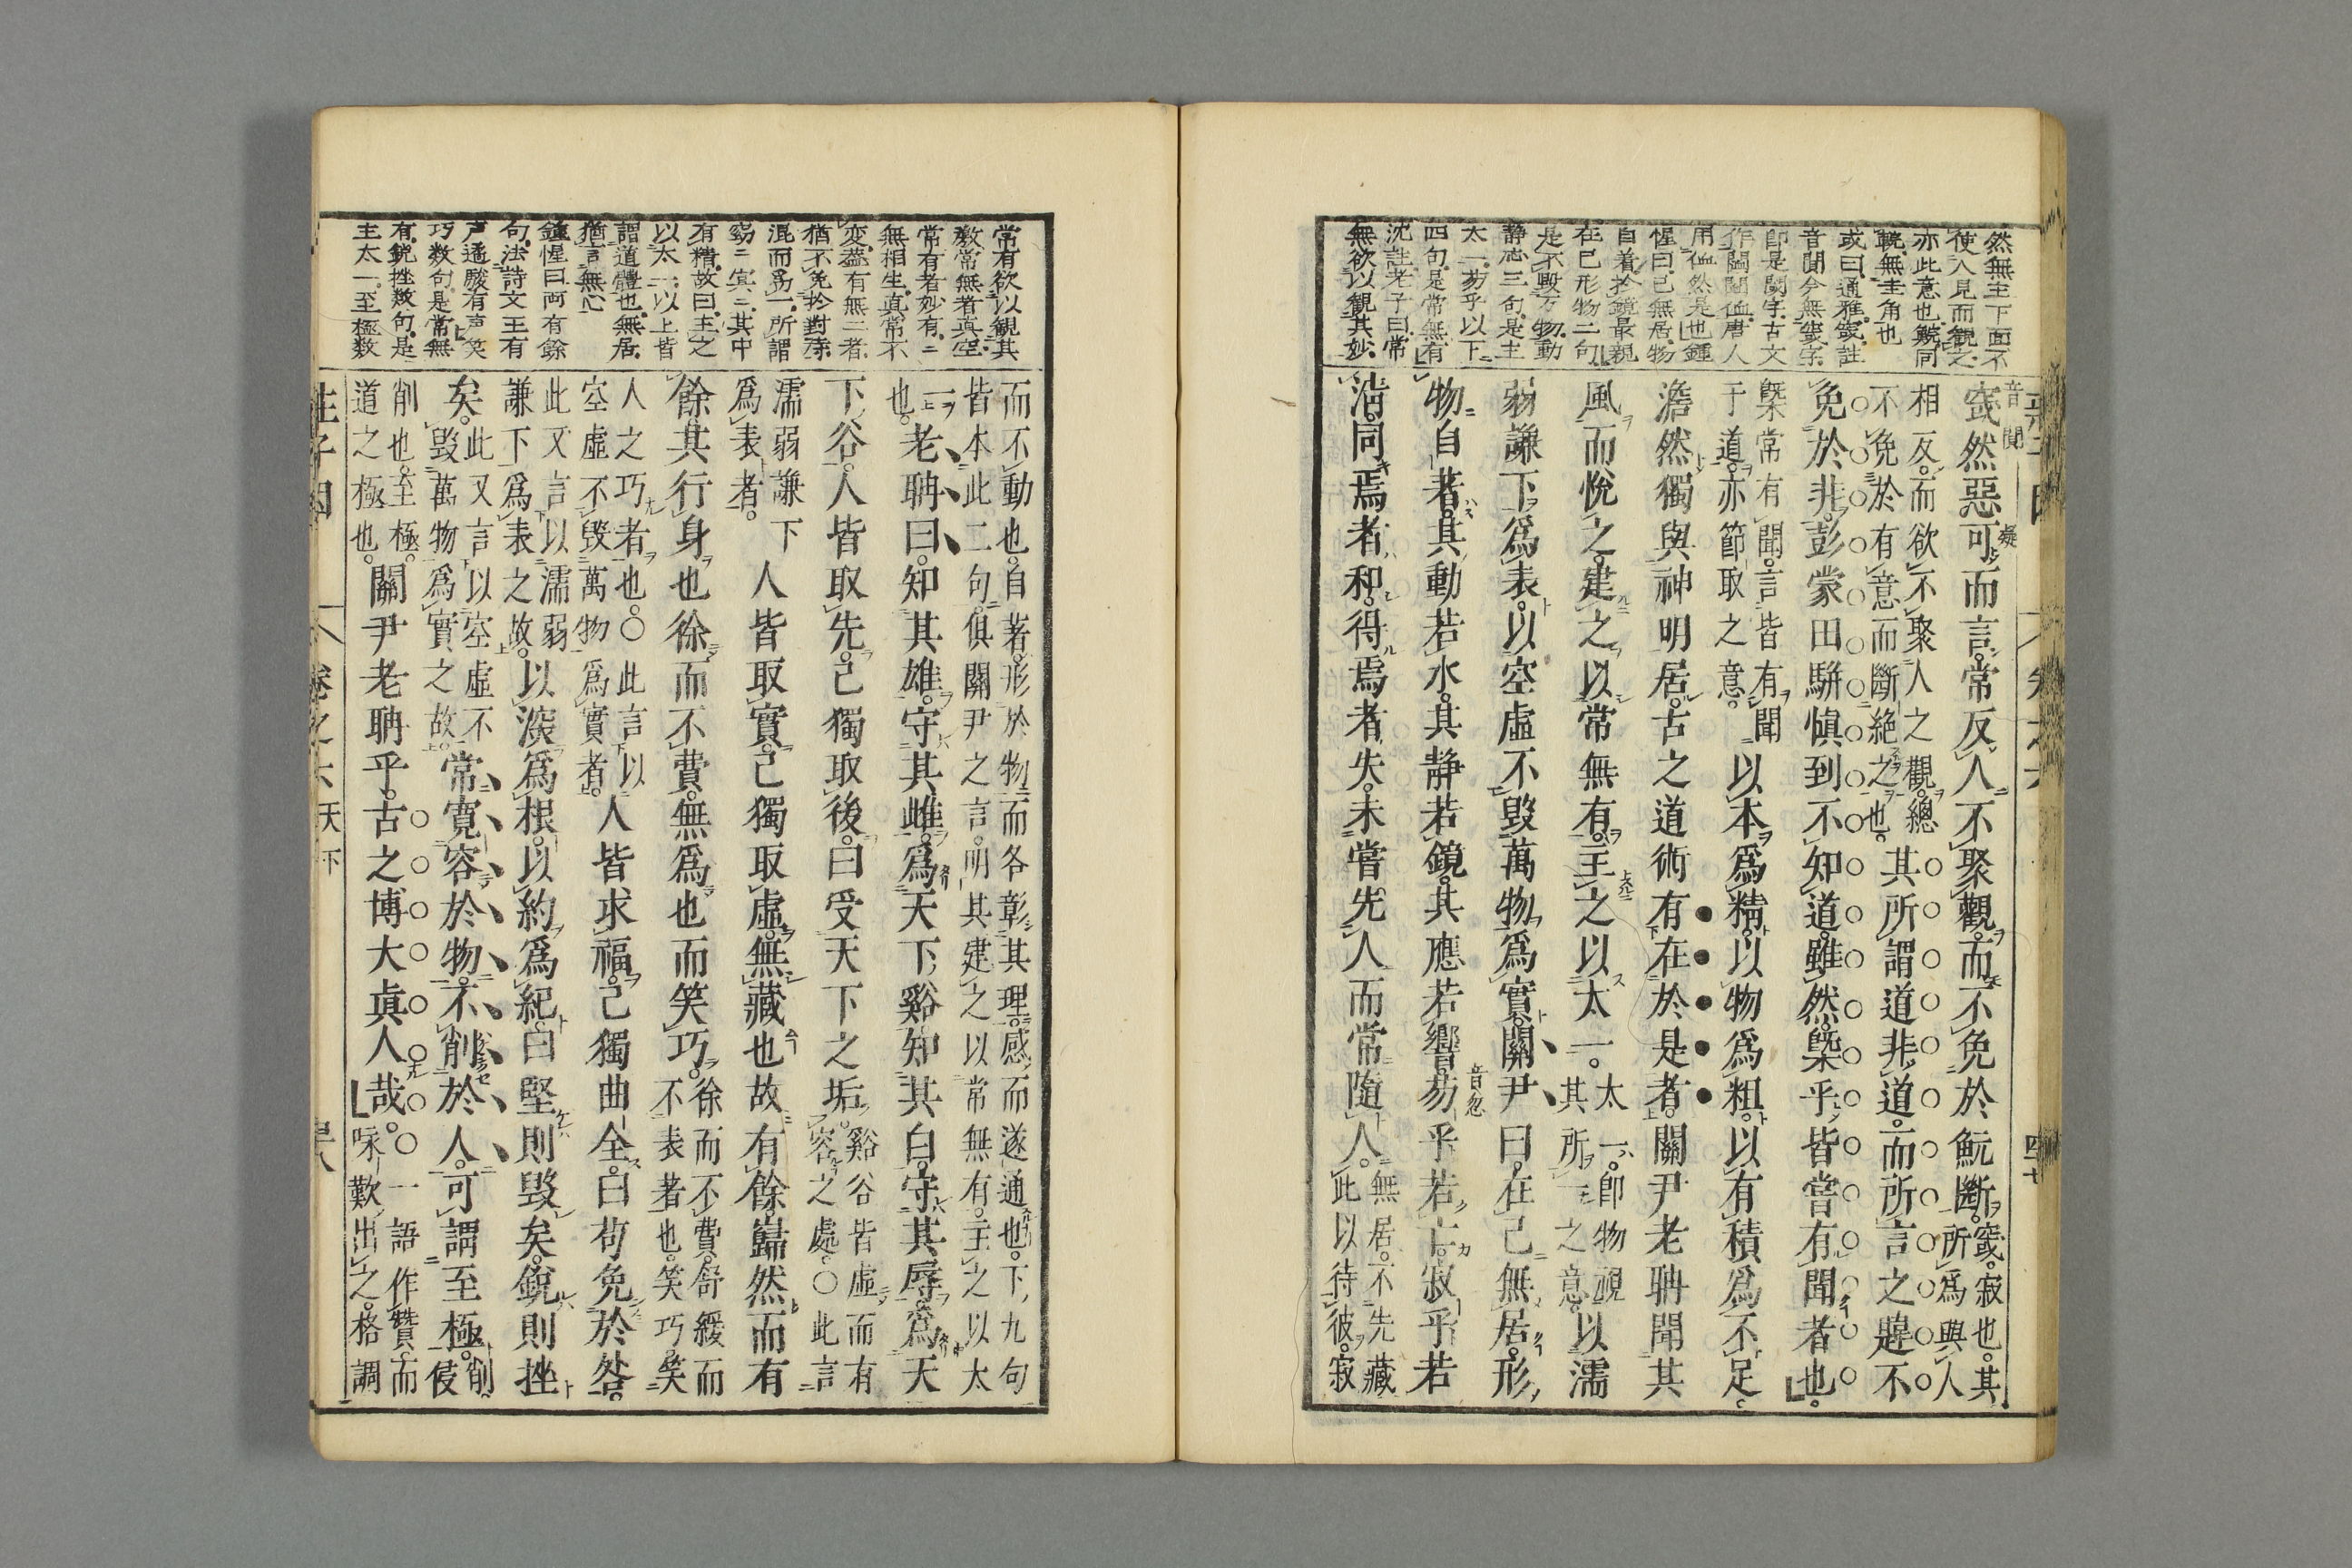 然無主下面不
使人見而觀之
亦此意也魭同
輐無圭角也
或曰通雅窢註
音聞今無窢字
即是閾字古文
作閾閾侐唐人
用侐然是也鍾
惺曰己無居物
自着於鏡最親
在已形物二句
是不毀万物動
静志三句是主
太一芴乎以下
四句是常無有
沈註老子曰常
無欲以觀其妙
窢然惡可而言常反人不聚觀而不免於魭斷
窢寂也其
所爲與人
相反而欲不聚人之觀總
不免於有意而斷絶之也
其所謂道非道而所言之韙不
免於非彭蒙田駢愼到不知道雖然槩乎皆嘗有聞者也
槩常有聞言皆有聞
于道亦節取之意
以本爲精以物爲粗以有積爲不足
澹然獨與神明居古之道術有在於是者關尹老聃聞其
風而悅之建之以常無有主之以太一
太一即物視
其所主之意
以濡
弱謙下爲表以空虛不毀萬物爲實關尹曰在己無居形
物自著其動若水其静若鏡其應若響芴乎若亡寂乎若
淸同焉者和得焉者失未嘗先人而常隨人
無居不先藏
此以待彼寂
常有欲以観其
徼常無者真空
常有者妙有二
無相生真常不
変葢有無二者
猶不免於對待
混而爲一所謂
窈二冥二其中
有精故曰主之
以太一以上皆
謂道體也無居
猶言無心
鍾惺曰両有餘
句法詩文王有
声遹駿有声笑
巧数句是常無
有銳挫数句是
主太一至極数
而不動也自著形於物而各彰其理感而遂通也下九句
皆本此二句俱關尹之言明其建之以常無有主之以太
一
也
老聃曰知其雄守其雌爲天下谿知其白守其辱爲天
下谷人皆取先己獨取後曰受天下之垢
谿谷皆虛而有
容之處○此言
濡弱謙下
爲表者
人皆取實己獨取虛無藏也故有餘巋然而有
餘其行身也徐而不費無爲也而笑巧
徐而不費舒緩而
不表著也笑巧笑
人之巧者也○此言以
空虛不毀萬物爲實者
人皆求福己獨曲全曰苟免於咎
此又言以濡弱
謙下爲表之故
以深爲根以約爲紀曰堅則毀矣銳則挫
矣
此又言以空虛不
毀萬物爲實之故
常寛容於物不削於人可謂至極
削
侵
削也至極
道之極也
關尹老聃乎古之博大眞人哉
○一語作贊而
咏歎出之格調
莊子因
卷之六
天下